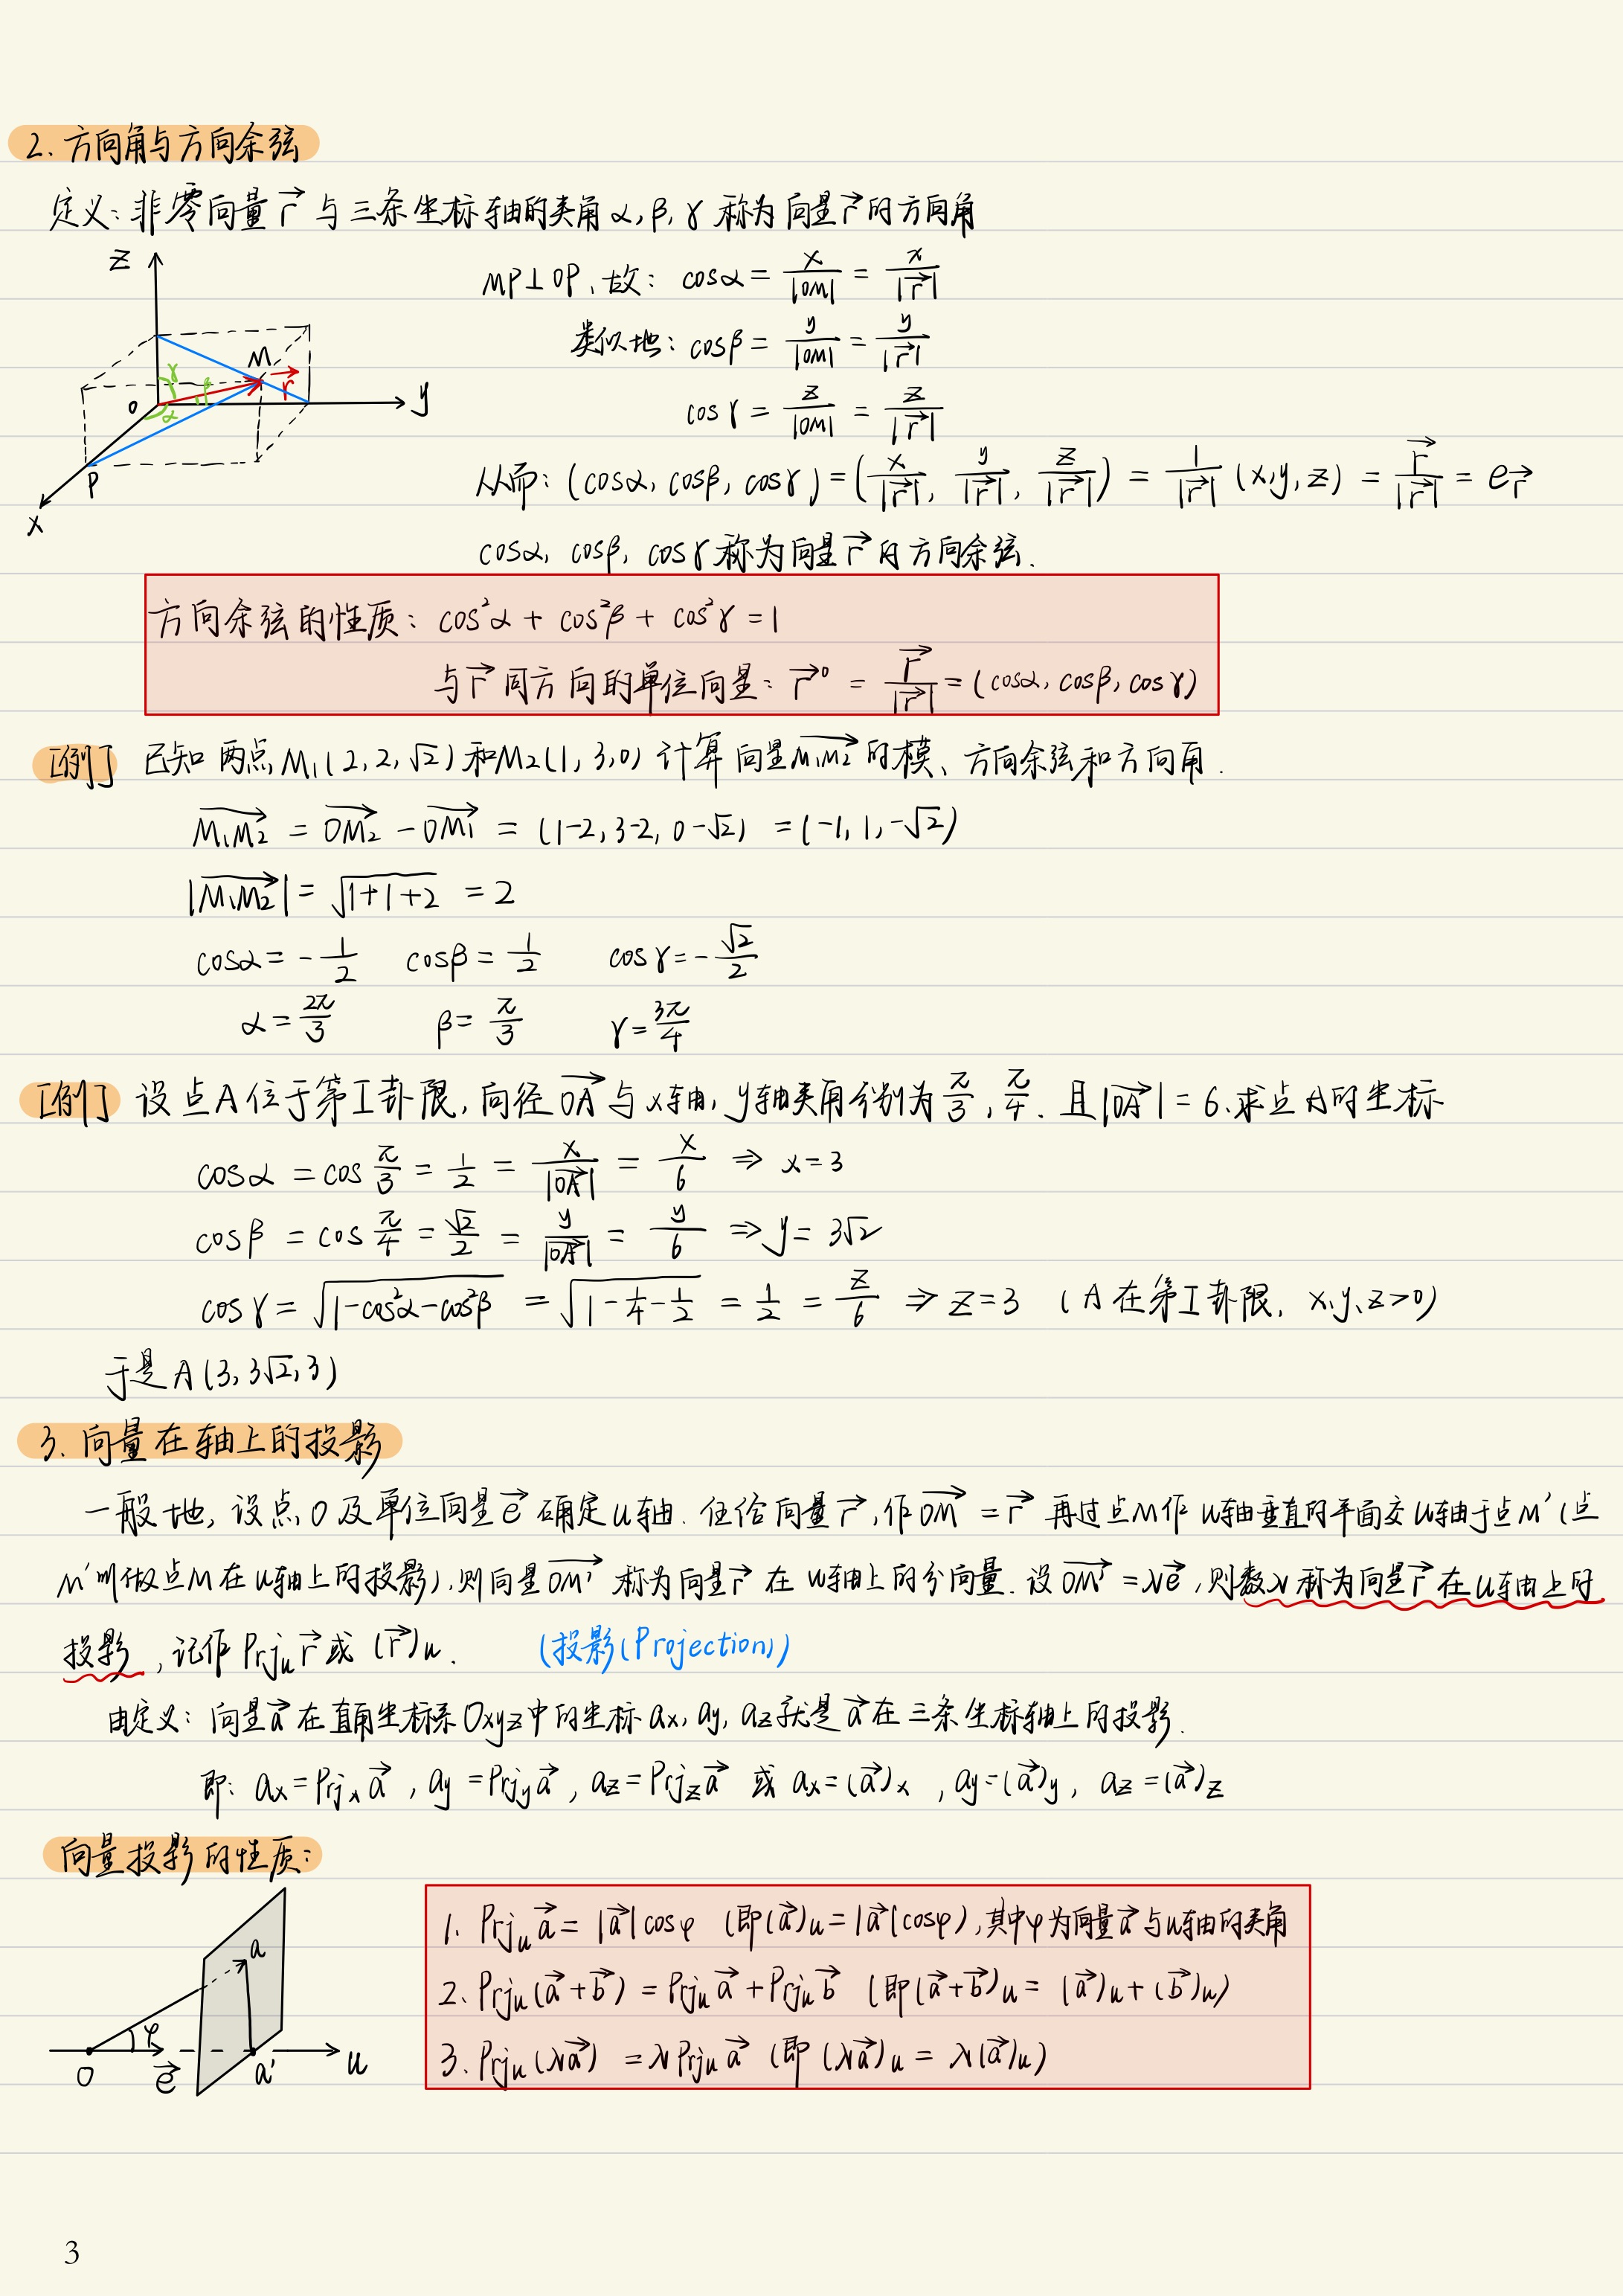 2. 方向角与方向余弦
定义：非零向量 r⃗ 与三条坐标轴的夹角 α, β, γ 称为向量 r⃗ 的方向角
z
y
x
O
M
P
r⃗
α
β
γ
MP⊥OP, 故： cosα = x/|OM| = x/|r⃗|
类似地： cosβ = y/|OM| = y/|r⃗|
cosγ = z/|OM| = z/|r⃗|
从而：(cosα, cosβ, cosγ) = (x/|r⃗|, y/|r⃗|, z/|r⃗|) = 1/|r⃗| (x, y, z) = r⃗/|r⃗| = e_r⃗
cosα, cosβ, cosγ 称为向量 r⃗ 的方向余弦.
方向余弦的性质： cos²α + cos²β + cos²γ = 1
与 r⃗ 同方向的单位向量： r⃗° = r⃗/|r⃗| = (cosα, cosβ, cosγ)
[例] 已知两点 M₁(2, 2, √2) 和 M₂(1, 3, 0) 计算向量 M₁M₂⃗ 的模、方向余弦和方向角.
M₁M₂⃗ = OM₂⃗ − OM₁⃗ = (1−2, 3−2, 0−√2) = (−1, 1, −√2)
|M₁M₂⃗| = √(1+1+2) = 2
cosα = −1/2 cosβ = 1/2 cosγ = −√2/2
α = 2π/3 β = π/3 γ = 3π/4
[例] 设点A位于第I卦限, 向径 OA⃗ 与 x轴, y轴夹角分别为 π/3, π/4. 且 |OA⃗| = 6, 求点A的坐标
cosα = cos π/3 = 1/2 = x/|OA⃗| = x/6 ⇒ x = 3
cosβ = cos π/4 = √2/2 = y/|OA⃗| = y/6 ⇒ y = 3√2
cosγ = √(1−cos²α−cos²β) = √(1−1/4−1/2) = 1/2 = z/6 ⇒ z = 3 (A在第I卦限, x、y、z>0)
于是 A(3, 3√2, 3)
3. 向量在轴上的投影
一般地, 设点O及单位向量 e⃗ 确定u轴. 任给向量 r⃗, 作 OM⃗ = r⃗ 再过点M作 u轴垂直的平面交u轴于点M′(点
M′叫做点M在u轴上的投影), 则向量 OM′⃗ 称为向量 r⃗ 在 u轴上的分向量. 设 OM′⃗ = λe⃗, 则数λ称为向量 r⃗ 在u轴上的
投影, 记作 Prj_u r⃗ 或 (r⃗)_u. (投影(Projection))
由定义：向量 a⃗ 在直角坐标系Oxyz中的坐标 a_x, a_y, a_z 就是 a⃗ 在三条坐标轴上的投影.
即： a_x = Prj_x a⃗, a_y = Prj_y a⃗, a_z = Prj_z a⃗ 或 a_x = (a⃗)_x, a_y = (a⃗)_y, a_z = (a⃗)_z
向量投影的性质：
a
φ
O
e⃗
a′
u
1. Prj_u a⃗ = |a⃗|cosφ (即(a⃗)_u = |a⃗|cosφ), 其中φ为向量 a⃗ 与u轴的夹角
2. Prj_u(a⃗+b⃗) = Prj_u a⃗ + Prj_u b⃗ (即(a⃗+b⃗)_u = (a⃗)_u + (b⃗)_u)
3. Prj_u(λa⃗) = λPrj_u a⃗ (即 (λa⃗)_u = λ(a⃗)_u)
3